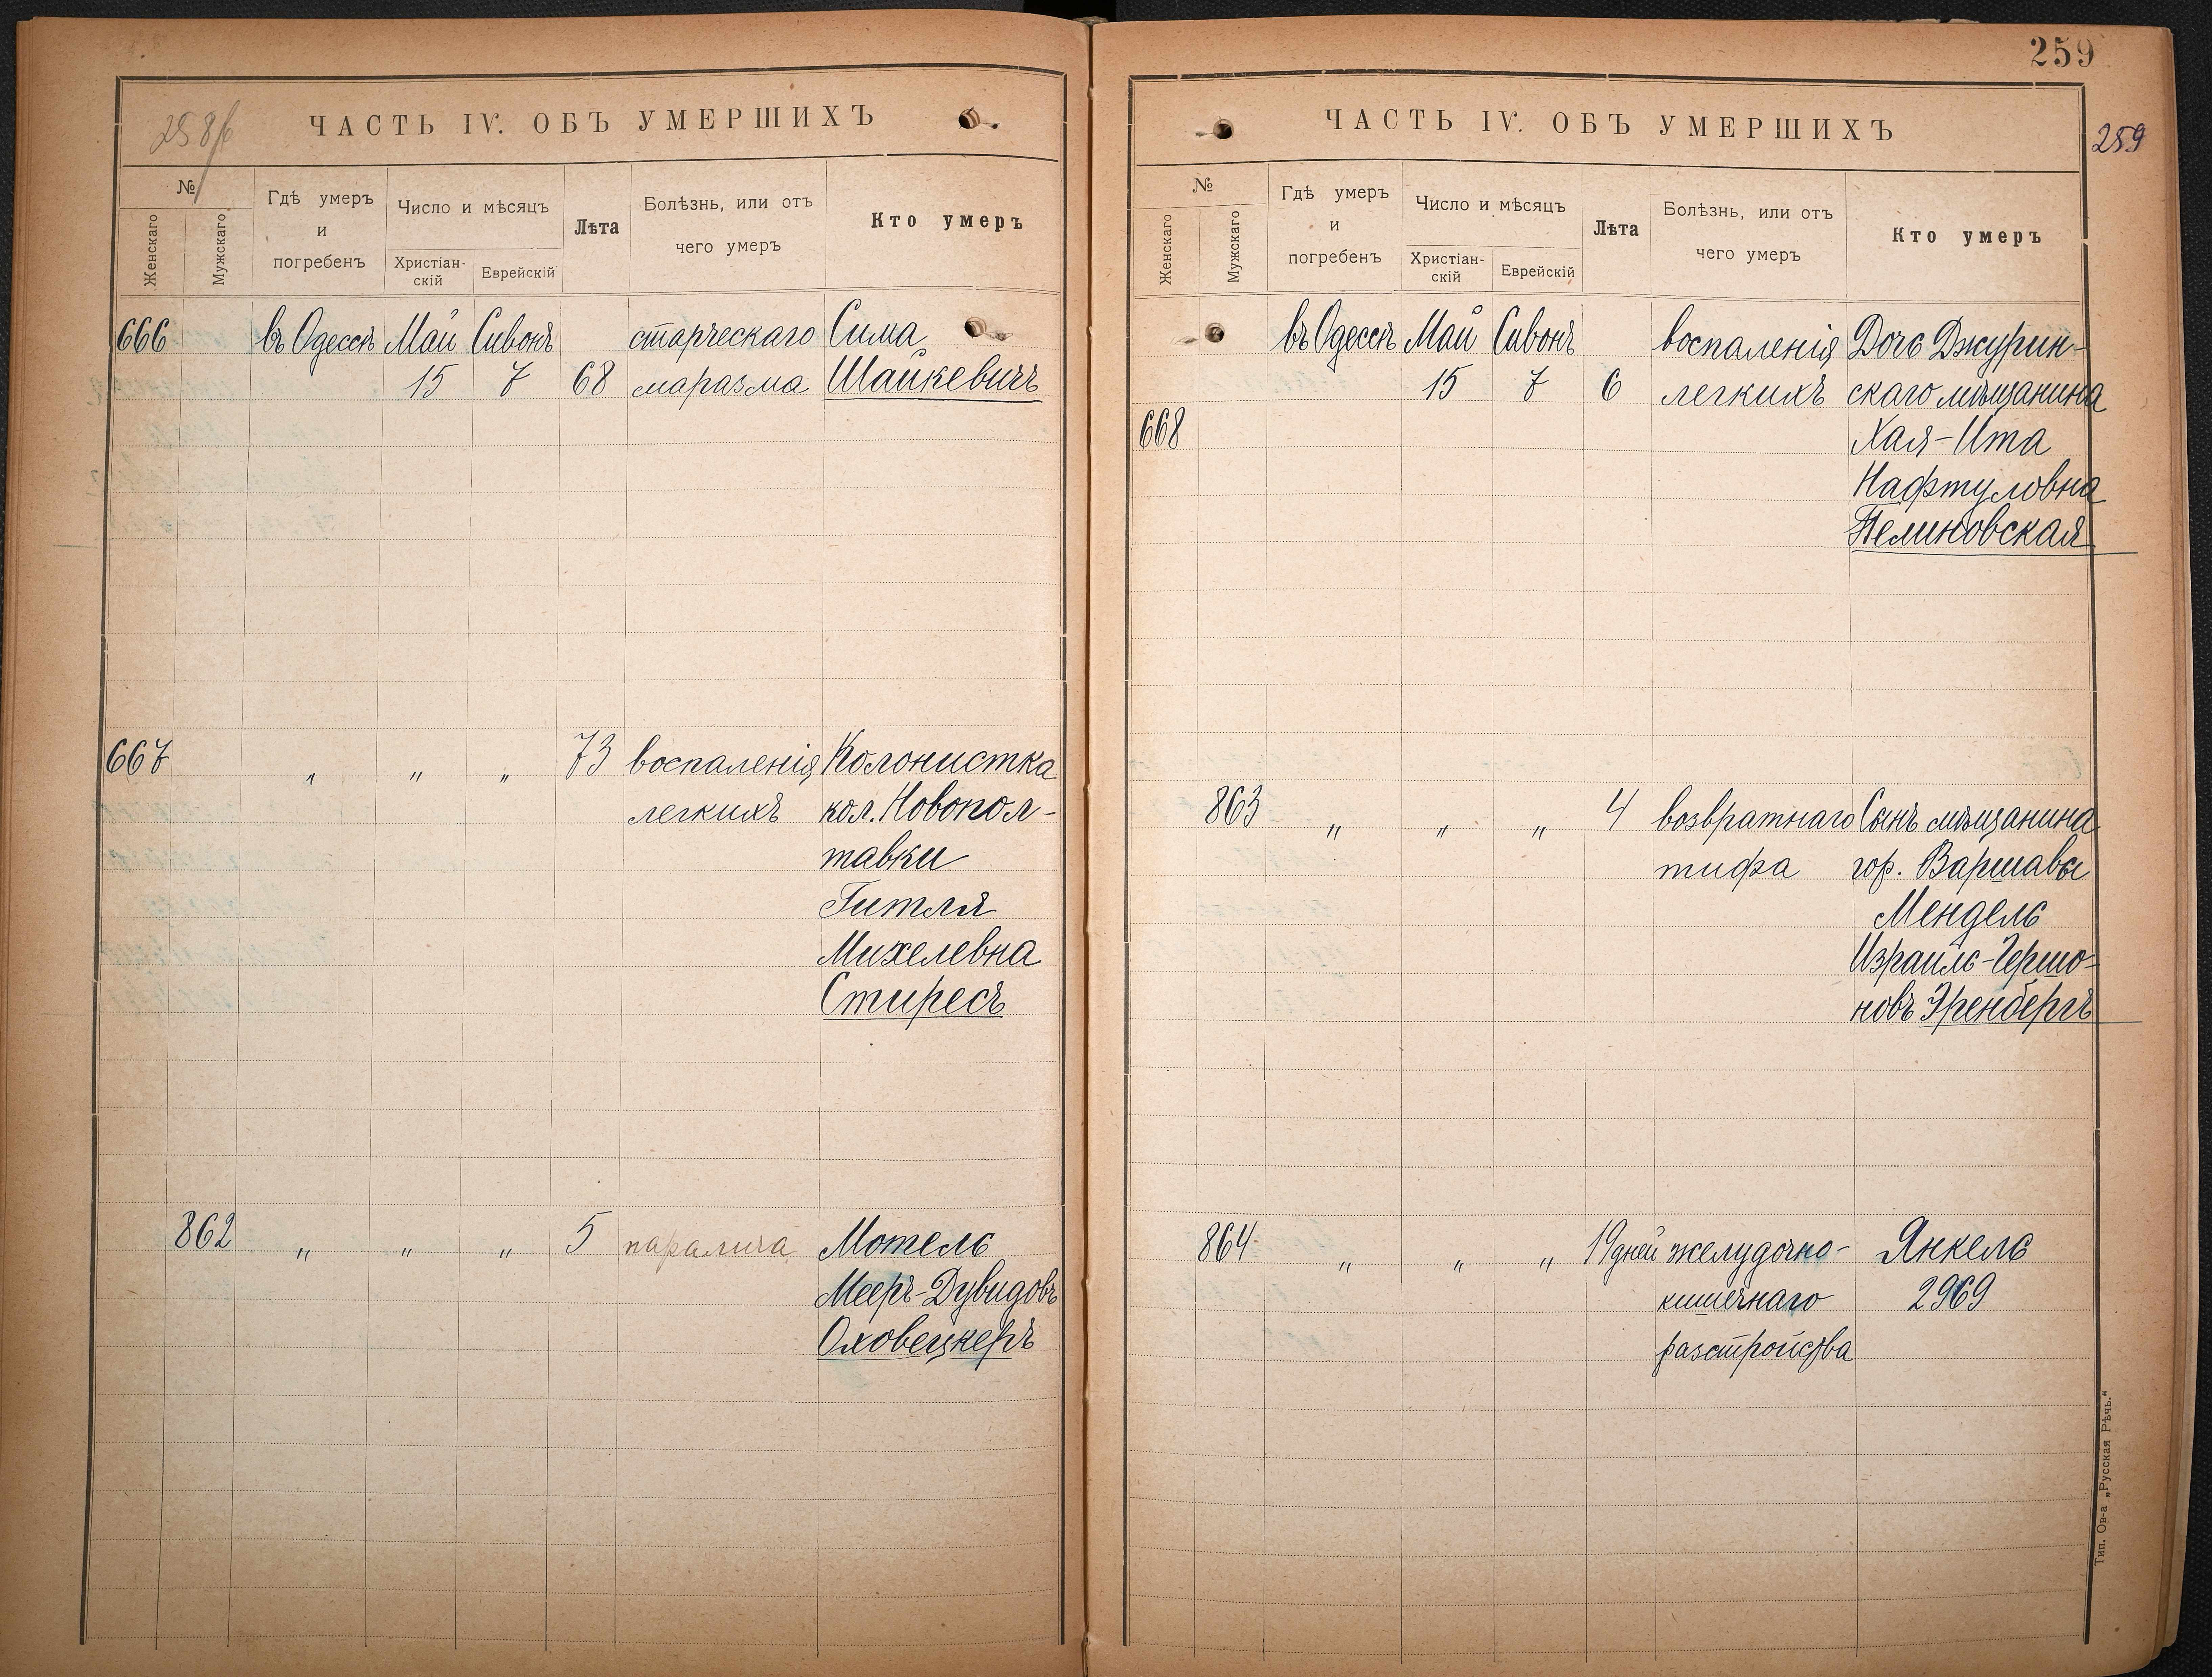 258/б
ЧАСТЬ IV. ОБЪ УМЕРШИХЪ
№
Женскаго
Мужскаго
Гдѣ умеръ
и
погребенъ
Число и мѣсяцъ
Христіан-
скій
Еврейскій
Лѣта
Болѣзнь, или отъ
чего умеръ
Кто умеръ
666 въ Одессѣ Май Сивонъ старческаго Сима
15 7 68 маразма Шайкевичъ
667 " " " 73 воспаленія Колонистка
легкихъ кол. Новопол-
тавки
Гитля
Михелевна
Стиресъ
862 " " " 5 паралича Мотель
Мееръ-Дувидовъ
Оховецкеръ
259
ЧАСТЬ IV. ОБЪ УМЕРШИХЪ
259
№
Женскаго
Мужскаго
Гдѣ умеръ
и
погребенъ
Число и мѣсяцъ
Христіан-
скій
Еврейскій
Лѣта
Болѣзнь, или отъ
чего умеръ
Кто умеръ
въ Одессѣ Май Сивонъ воспаленія Дочь Джурин-
15 7 6 легкихъ скаго мѣщанина
668 Хая-Ита
Нафтуловна
Пелиновская
863 " " " 4 возвратнаго Сынъ мѣщанина
тифа гор. Варшавы
Мендель
Израиль-Гершо-
новъ Эренбергъ
864 " " " 19 дней желудочно- Янкель
кишечнаго 2969
разстройства
Тип. Ов-а „Русская Рѣчь.“